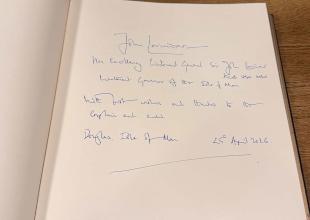 John Lorimer
His Excellency Lieutenant General Sir John Lorimer
Lieutenant Governor of the Isle of Man
With best wishes and thanks to the
Captain and
Douglas, Isle of Man 25 April 2026